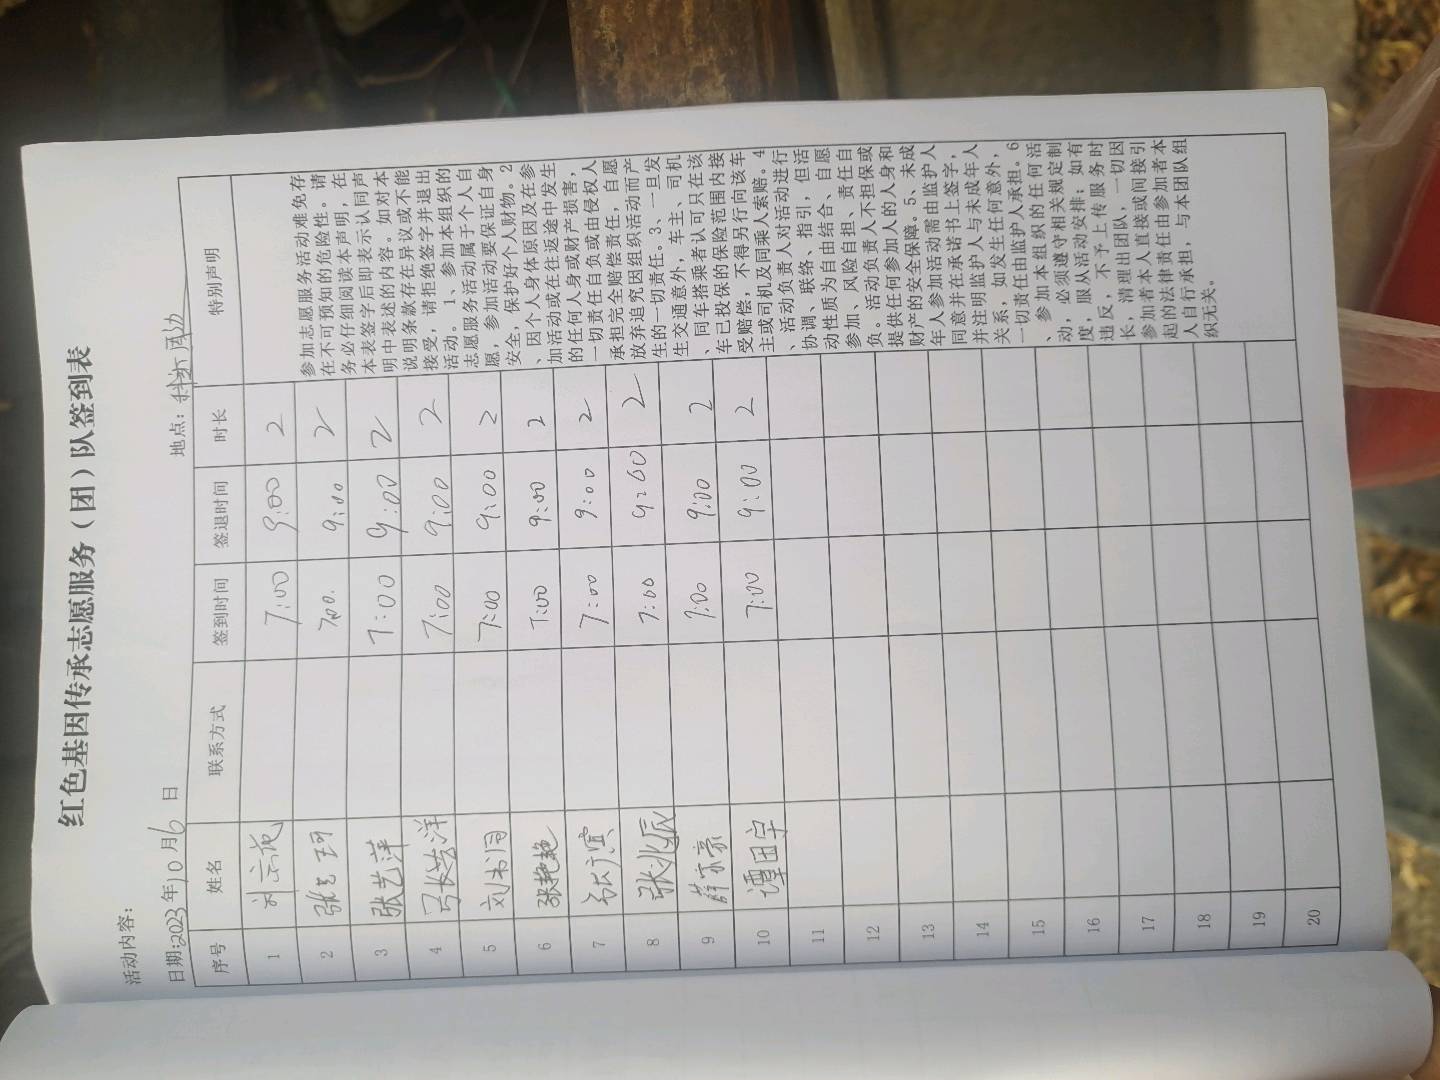 红色基因传承志愿服务（团）队签到表
活动内容：
日期:2023年10月6日 地点：周边
序号 姓名 联系方式 签到时间 签退时间 时长 特别声明
1 7:00 9:00 2
2 张 700. 9:00 2
3 张艺萍 7:00 9:00 2
4 张艺洋 7:00 9:00 2
5 刘 7:00 9:00 2
6 张艳艳 7:00 9:00 2
7 7:00 9:00 2
8 张兆辰 7:00 9:00 2
9 薛亦豪 7:00 9:00 2
10 谭田宇 7:00 9:00 2
11
12
13
14
15
16
17
18
19
20
参加志愿服务活动难免存
在不可预知的危险性。请
务必仔细阅读本声明，在
本表签字后即表示认同声
明中表述的内容。如对本
说明条款存在异议或不能
接受，请拒绝签字并退出
活动。1、参加本组织的
志愿服务活动属于个人自
愿，参加活动要保证自身
安全，保护好个人财物。2
、因个人身体原因及在参
加活动或在往返途中发生
的任何人身或财产损害，
一切责任自负或由侵权人
承担完全赔偿责任，自愿
放弃追究因组织活动而产
生的一切责任。3、一旦发
生交通意外，车主、司机
、同车搭乘者认可只在该
车已投保的保险范围内接
受赔偿，不得另行向该车
主或司机及同乘人索赔。4
、活动负责人对活动进行
协调、联络、指引，但活
动性质为自由结合、自愿
参加、风险自担、责任自
负。活动负责人不担保或
提供任何参加人的人身和
财产的安全保障。5、未成
年人参加活动需由监护人
同意并在承诺书上签字，
并注明监护人与未成年人
关系，如发生任何意外，
一切责任由监护人承担。6
、参加本组织的任何活
动，必须遵守相关规定制
度，服从活动安排；如有
违反，不予上传服务时
长，清理出团队，一切因
参加者本人直接或间接引
起的法律责任由参加者本
人自行承担，与本团队组
织无关。